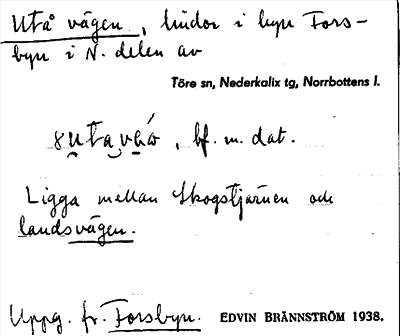 Utå vägen, lindor i byn Fors-
byn i N. delen av
Töre sn, Nederkalix tg, Norrbottens l.
bf. m. dat.
Ligga mellan Skogstjärnen och
landsvägen.
Uppg. fr. Forsbyn. EDVIN BRÄNNSTRÖM 1938.